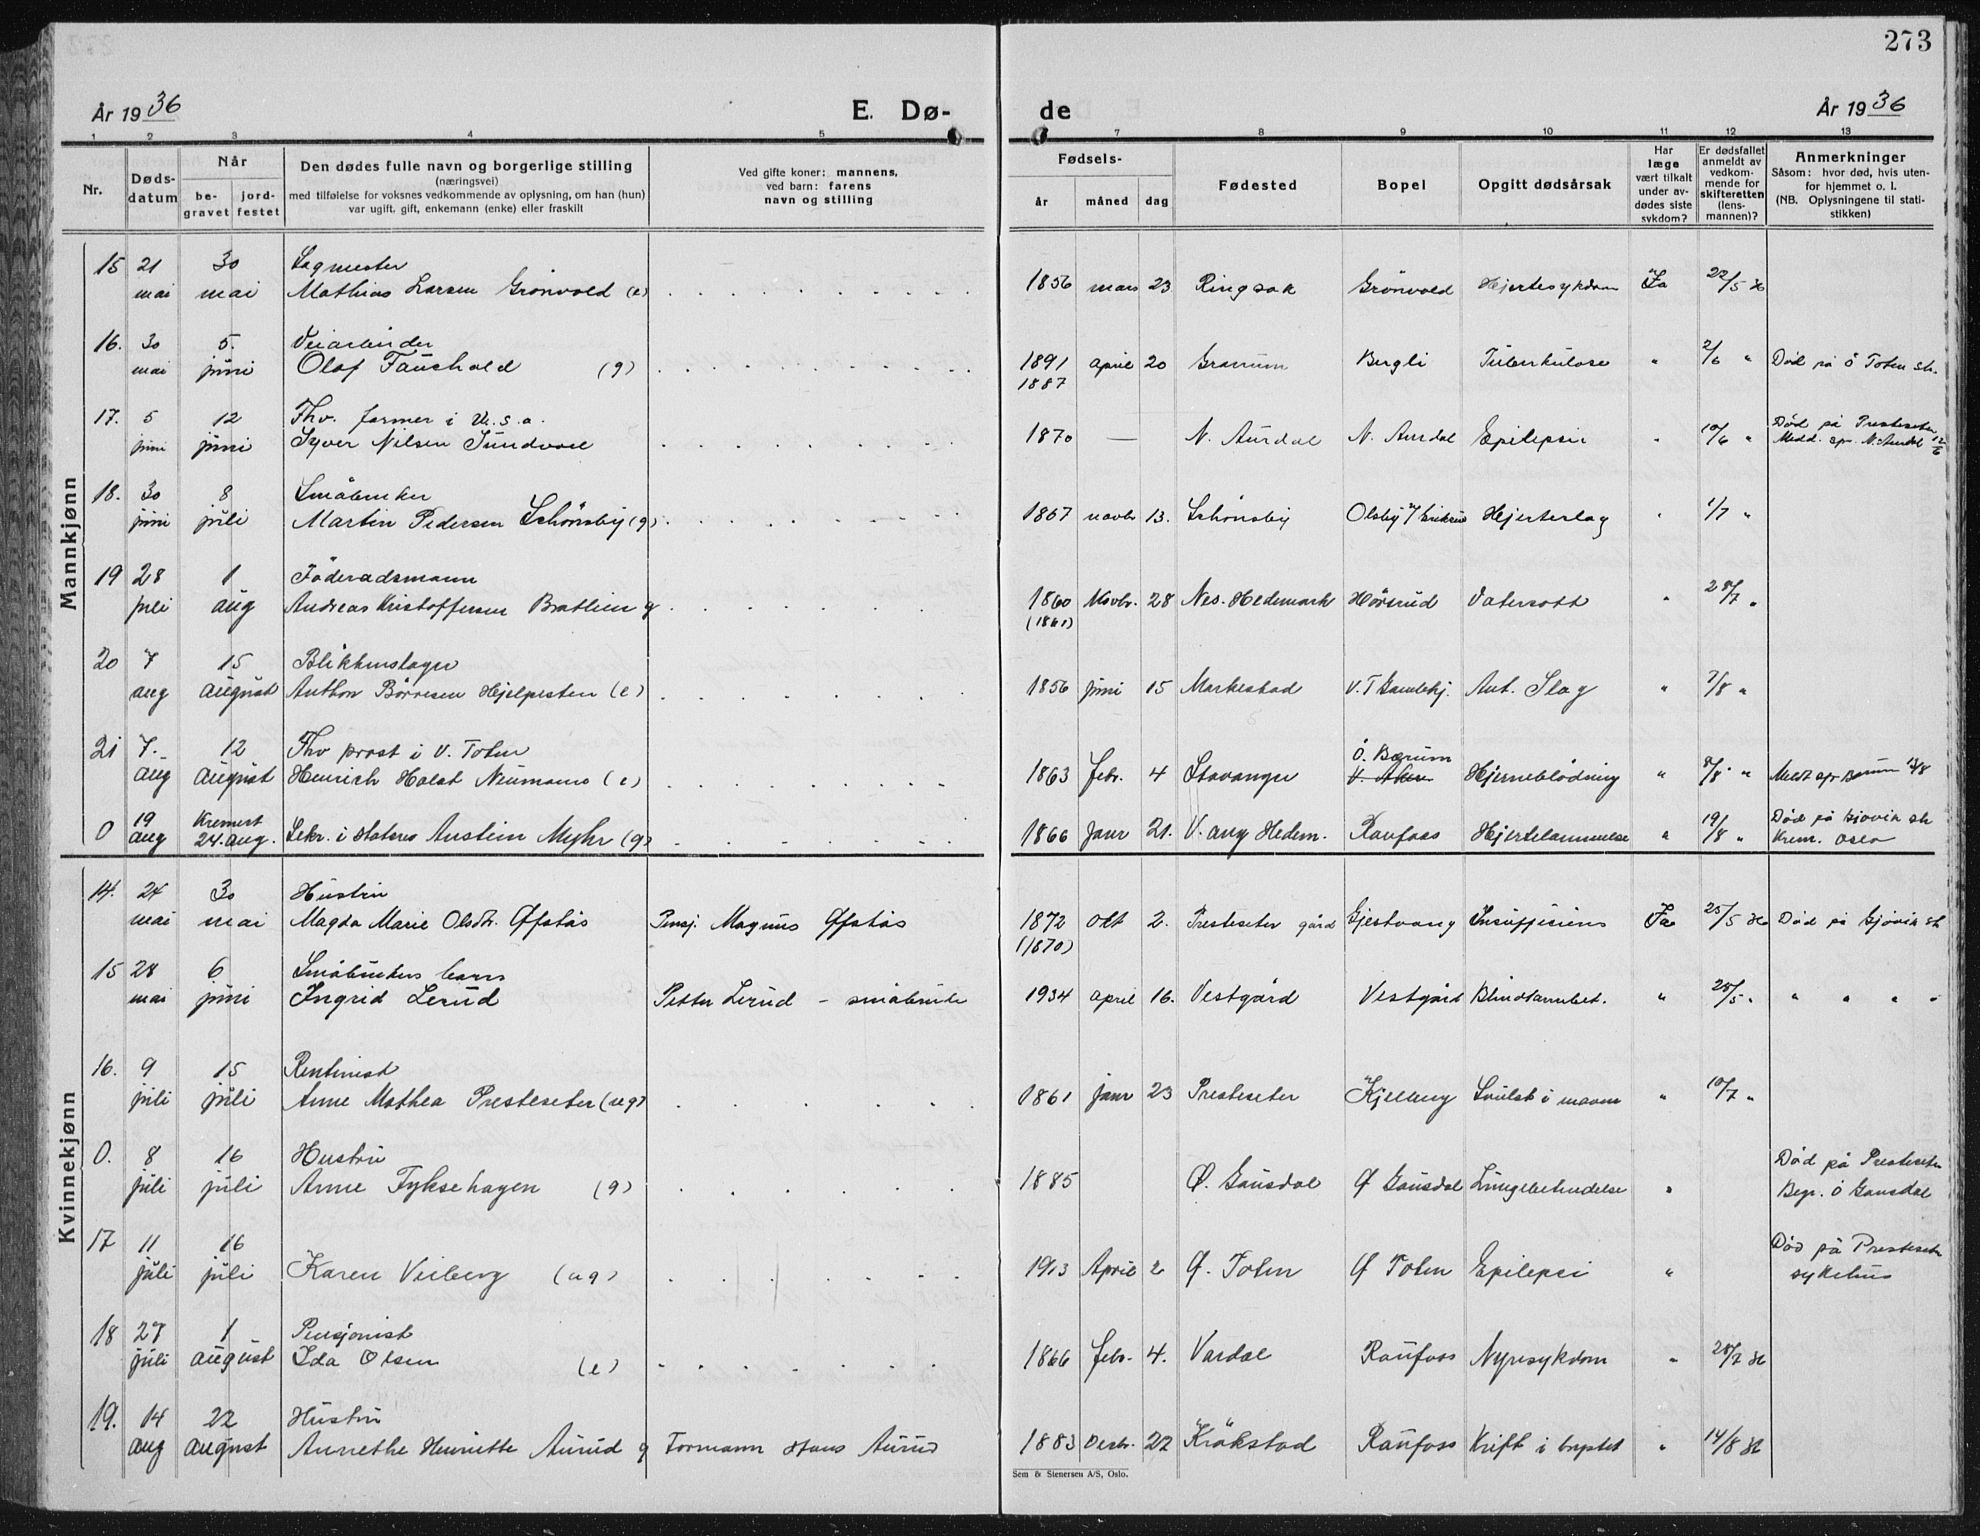 273
År 1936 E. Dø- de År 1936
1 2 3 4 5 7 8 9 10 11 12 13
Nr. Døds-datum Når be-gravet jord-festet Den dødes fulle navn og borgerlige stilling (næringsvei) med tilføielse for voksnes vedkommende av oplysning, om han (hun) var ugift, gift, enkemann (enke) eller fraskilt Ved gifte koner: mannens, ved barn: farens navn og stilling Fødsels- år måned dag Fødested Bopel Opgitt dødsårsak Har læge vært tilkalt under av-dødes siste sykdom? Er dødsfallet anmeldt av vedkom-mende for skifteretten (lens-mannen)? Anmerkninger Såsom: hvor død, hvis uten-for hjemmet o. l. (NB. Oplysningene til stati-stikken)
Mannkjønn
15 21 30 Sagmester
mai mai Mathias Larsen Grönvold (e) 1856 mars 23 Ringsak Grönvold Hjertesykdom Ja 22/5 36
16. 30 5. Veiarbeider
mai juni Olaf Fauchald (g) 1891 april 20 Granum Bergli Tuberkulose " 2/6 " Död på Ö Toten sh.
1887
17. 5 12 Fhv. farmer i U.s.a. Död på Presteseter
juni juni Syver Nilsen Sundvoll 1870 — N. Aurdal N. Aurdal Epilepsi " 10/6 " Medd. spr. N. Aurdal 12/6
18. 30 8 Småbruker
juni juli Martin Pedersen Schönsby (g) 1867 novbr 13. Schönsby Olsby Hjerteslag " 1/7 "
19 28 1 Föderådsmann
juli aug Andreas Kristoffersen Bratlien g 1860 Novbr. 28 Nes. Hedemark Hörsrud Vatersott " 28/7 "
(1861)
20 7 15 Blikkenslager
aug august Anthon Börresen Hjelpesten (e) 1856 juni 15 Markestad V. T Gamlehj. Ant. Slag " 7/8 "
21 7. 12 Fhv prost i V. Toten Ö. Bærum
aug august Henrich Holst Neumann (e) 1863 febr. 4 Stavanger V. Aker Hjerneblödning " 8/8 " Medd spr Bærum 13/8
0 19 Kremert Död på Gjövik sh
aug 24. aug. Sekr. i statens Austein Myhr (g) 1866 Janr 21. Vang Hedem. Raufoss Hjertelammelse " 19/8 " Krem. Oslo
Kvinnekjønn
14. 24 30 Hustru
mai mai Magda Marie Olsdtr. Øfstås Pensj. Magnus Øfstås 1872 okt 2. Presteseter gård Gjestvang Insuffisiens Ja 25/5 36 Död på Gjövik sh
(1870)
15 28 6 Småbrukers barn
mai juni Ingrid Lerud Petter Lerud - småbruker 1934 april 16. Vestgård Vestgård Blindtarmbet. " 28/5 " " " " "
16. 9 15 Rentenist
juli juli Anne Mathea Presteseter (ug) 1861 janr 23 Presteseter Kjelberg Svulst i maven " 10/7 "
0. 8 16 Hustru Död på Presteseter
juli juli Anne Fyksehagen (g) 1885 Ø. Gausdal Ø Gausdal Lungebetendelse " Begr. Ö Gausdal
17 11 16 Död på Presteseter
juli juli Karen Veiberg (ug) 1913 April 2 Ø. Toten Ø Toten Epilepsi " sykehus
18 27 1 Pensjonist
juli august Ida Olsen (e) 1866 febr. 4. Vardal Raufoss Nyresykdom " 28/7 36
19. 14 22 Hustru
aug august Annethe Henriette Aurud g Formann Hans Aurud 1883 Desbr. 22 Kråkstad Raufoss Kreft i brystet " 14/8 36
Sem & Stenersen A/S, Oslo.